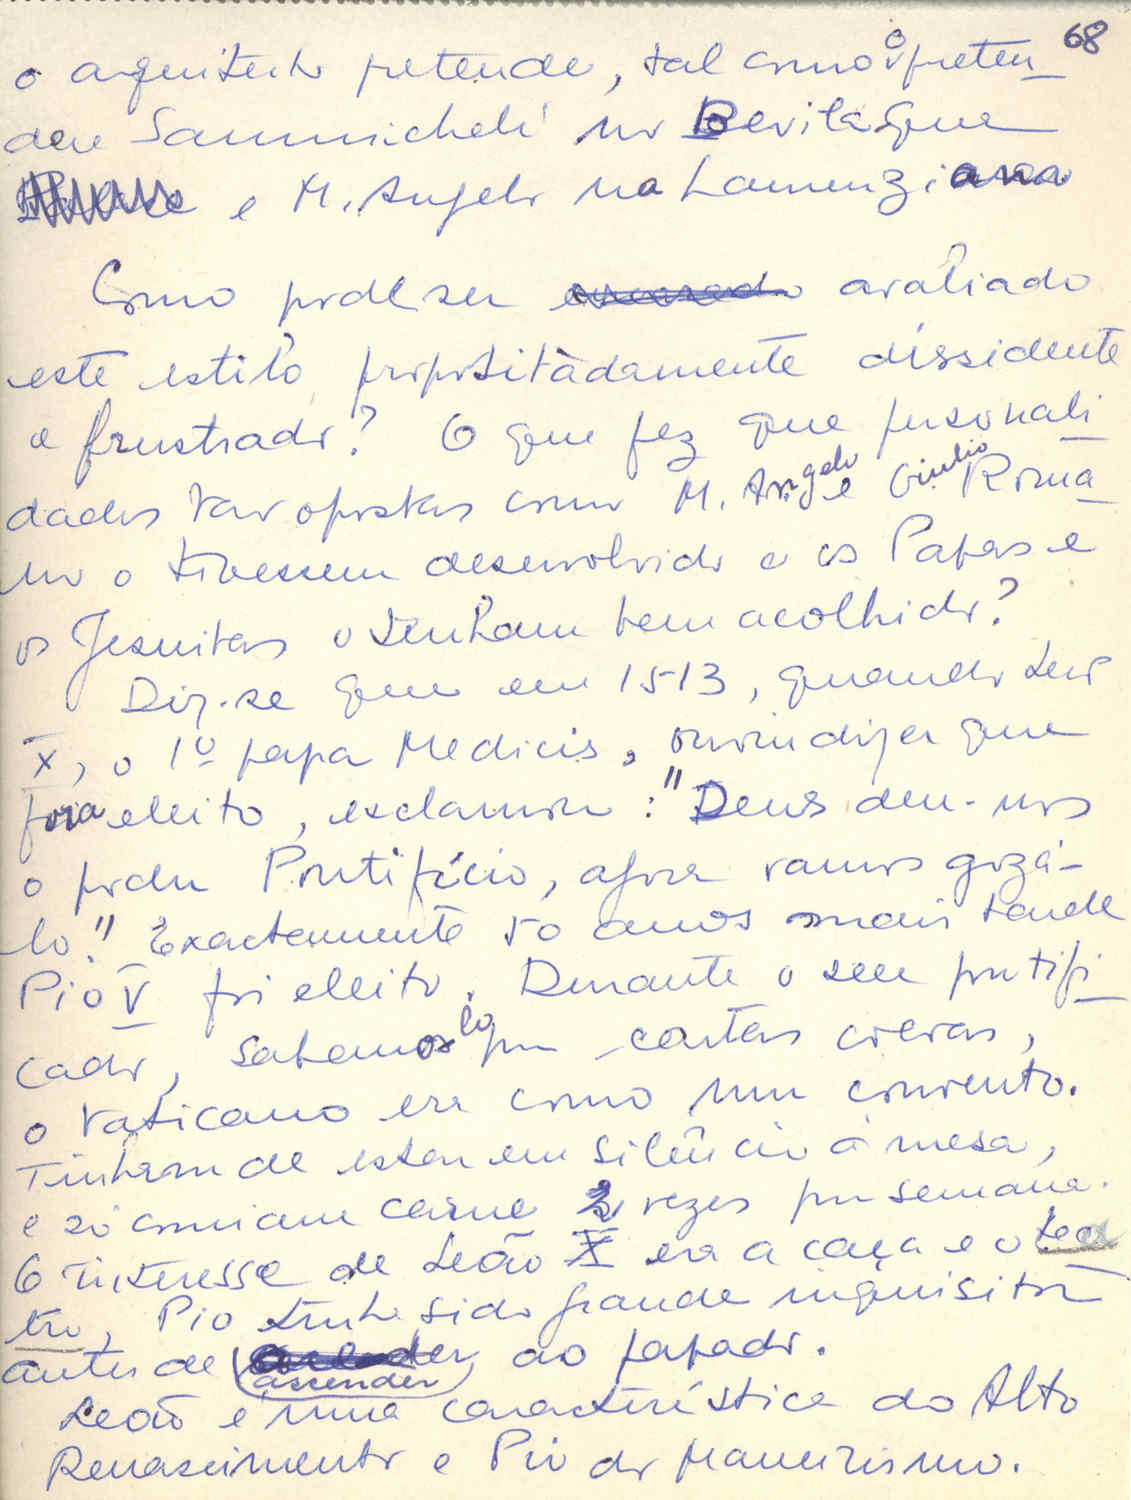 68
o arquitecto pretende, tal como o preten-
deu Sanmicheli no Bevilaqua
e M. Angelo na Laurenziana
Como pode ser avaliado
este estilo propositadamente dissidente
e frustrado? O que fez que personali-
dades tão opostas como M. Angelo e Giulio Roma-
no o tivessem desenvolvido e os Papas e
os Jesuitas o tenham bem acolhido?
Diz-se que em 1513, quando Leão
X, o 1º papa Medicis, ouviu dizer que
fora eleito, exclamou: "Deus deu-nos
o poder Pontifício, agora vamos gozá-
lo." Exactamente 50 anos mais tarde
Pio V foi eleito. Durante o seu pontifi-
cado, sabemo-lo por cartas coevas,
o Vaticano era como um convento.
Tinham de estar em silêncio à mesa,
e só comiam carne 2 vezes por semana.
O interesse de Leão X era a caça e o tea-
tro, Pio tinha sido grande inquisitor
antes de ascender ao papado.
Leão é uma característica do Alto
Renascimento e Pio do Maneirismo.